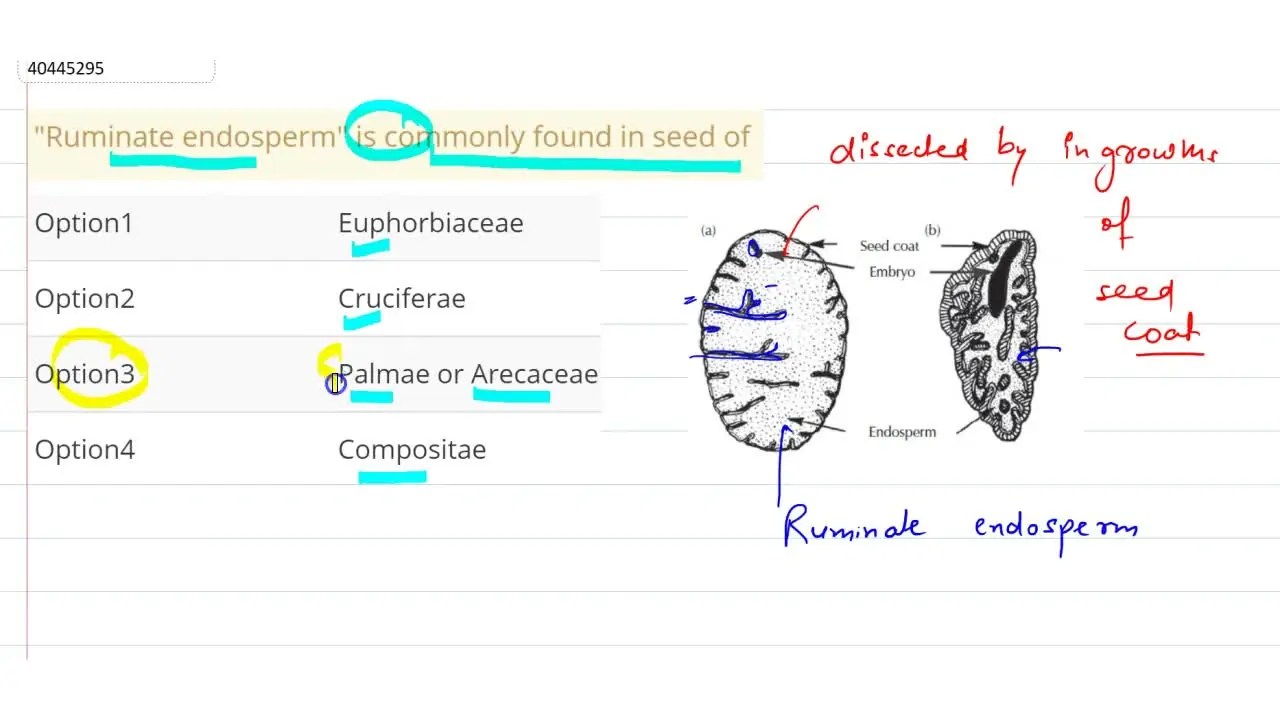 40445295
"Ruminate endosperm" is commonly found in seed of
Option1 Euphorbiaceae
Option2 Cruciferae
Option3 Palmae or Arecaceae
Option4 Compositae
dissected by ingrowths
of
seed
coat
(a)
Seed coat
(b)
Embryo
Endosperm
Ruminate endosperm